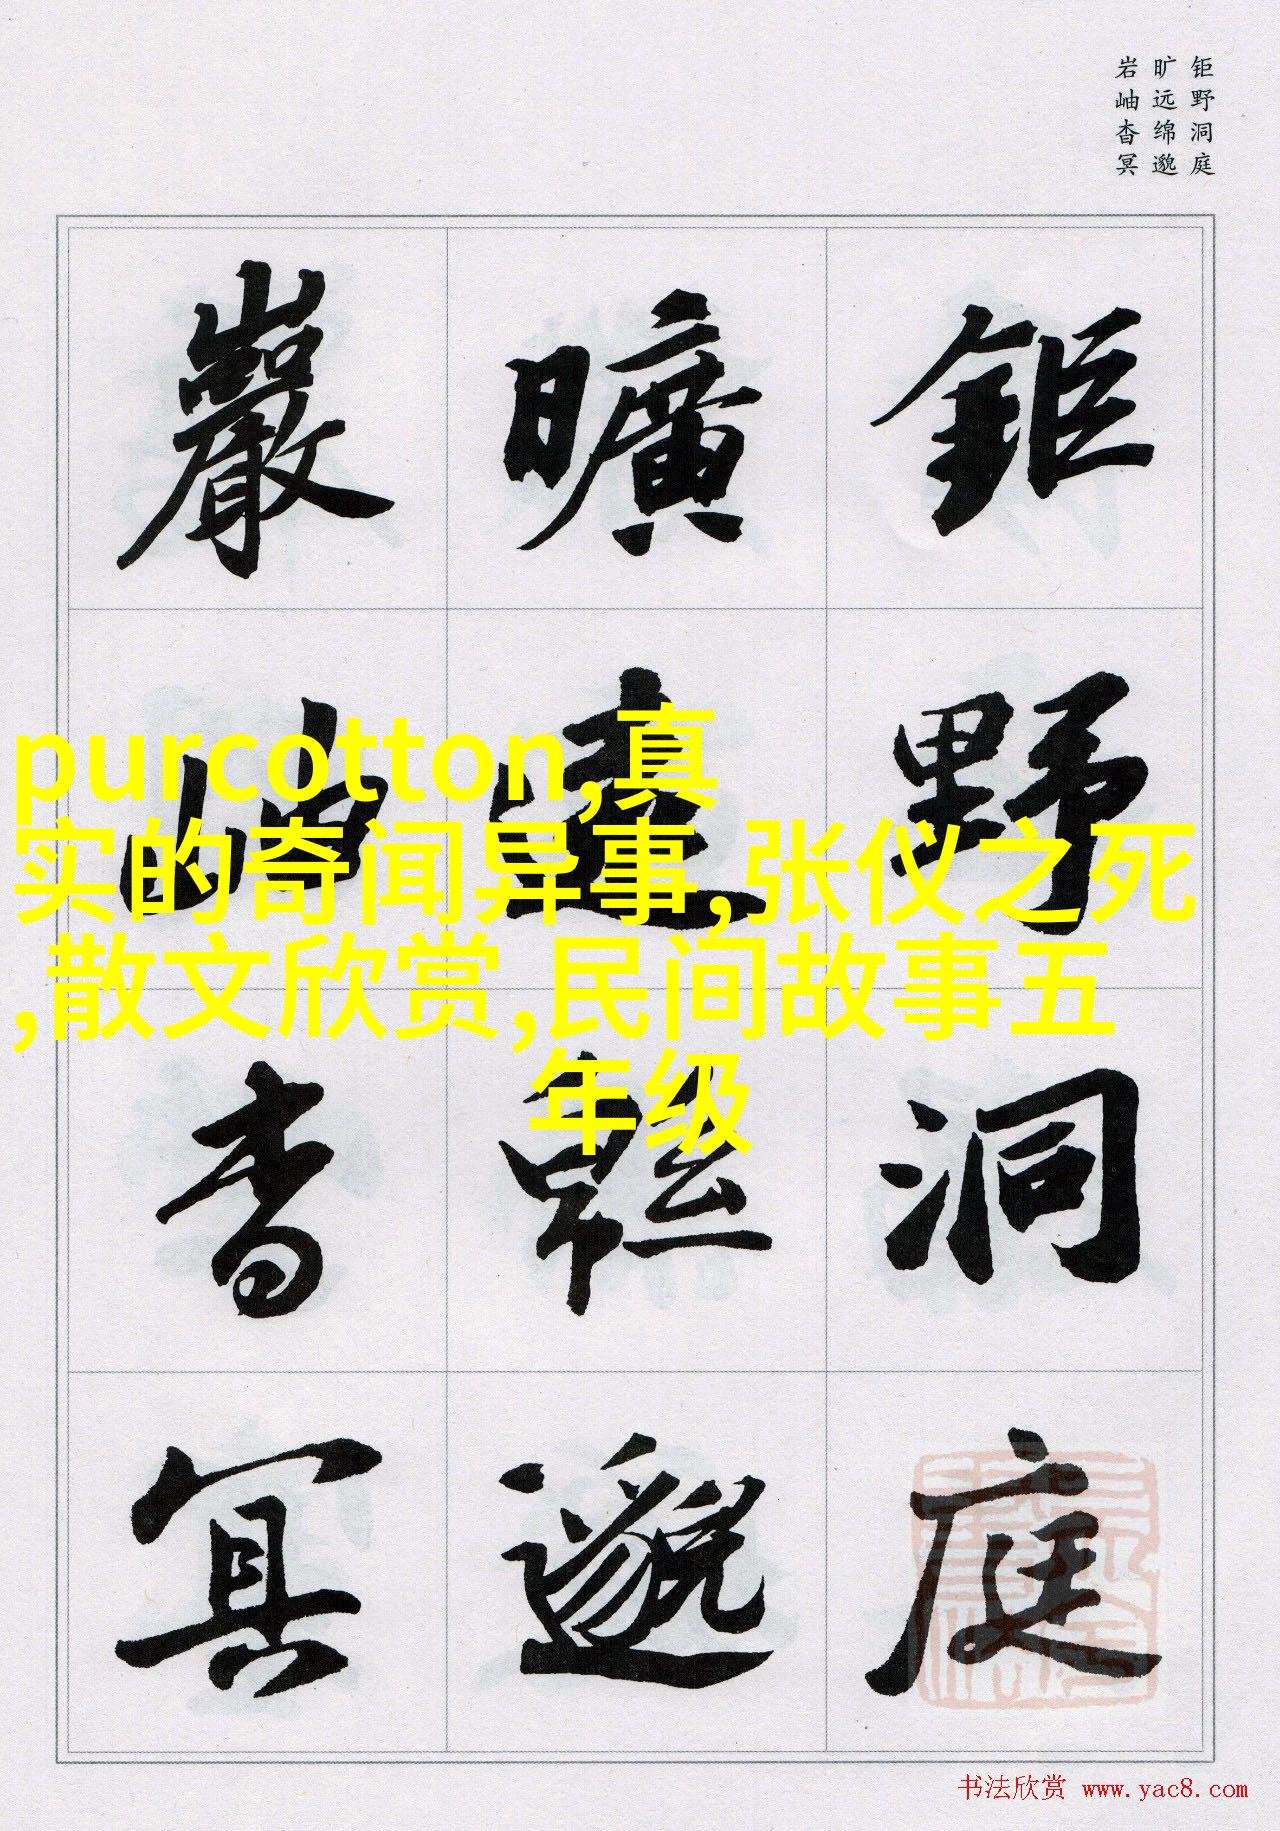 钜野洞庭
旷远绵邈
岩岫杳冥
鉅野洞庭
曠遠緜邈
巖岫杳冥
purcotton,真
实的奇闻异事,张仪之死
,散文欣赏,民间故事五
年级
书法欣赏 www.yac8.com